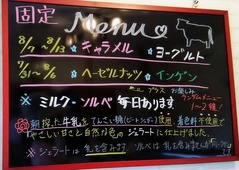 固定 Menu
8/7~8/13 ☆キャラメル ☆ヨーグルト
7/31~8/6 ☆ヘーゼルナッツ ☆インゲン
プラス お楽しみ
※ ミルク・ソルベ 毎日あります
ランダムメニュー
1~2種!
朝搾った牛乳をてんさい糖(ビートシュガー)使用、着色料不使用で
"やさしい甘さと自然な色"のジェラートに仕上げました。
※ジェラートは乳を含みます ソルベは乳を含みません